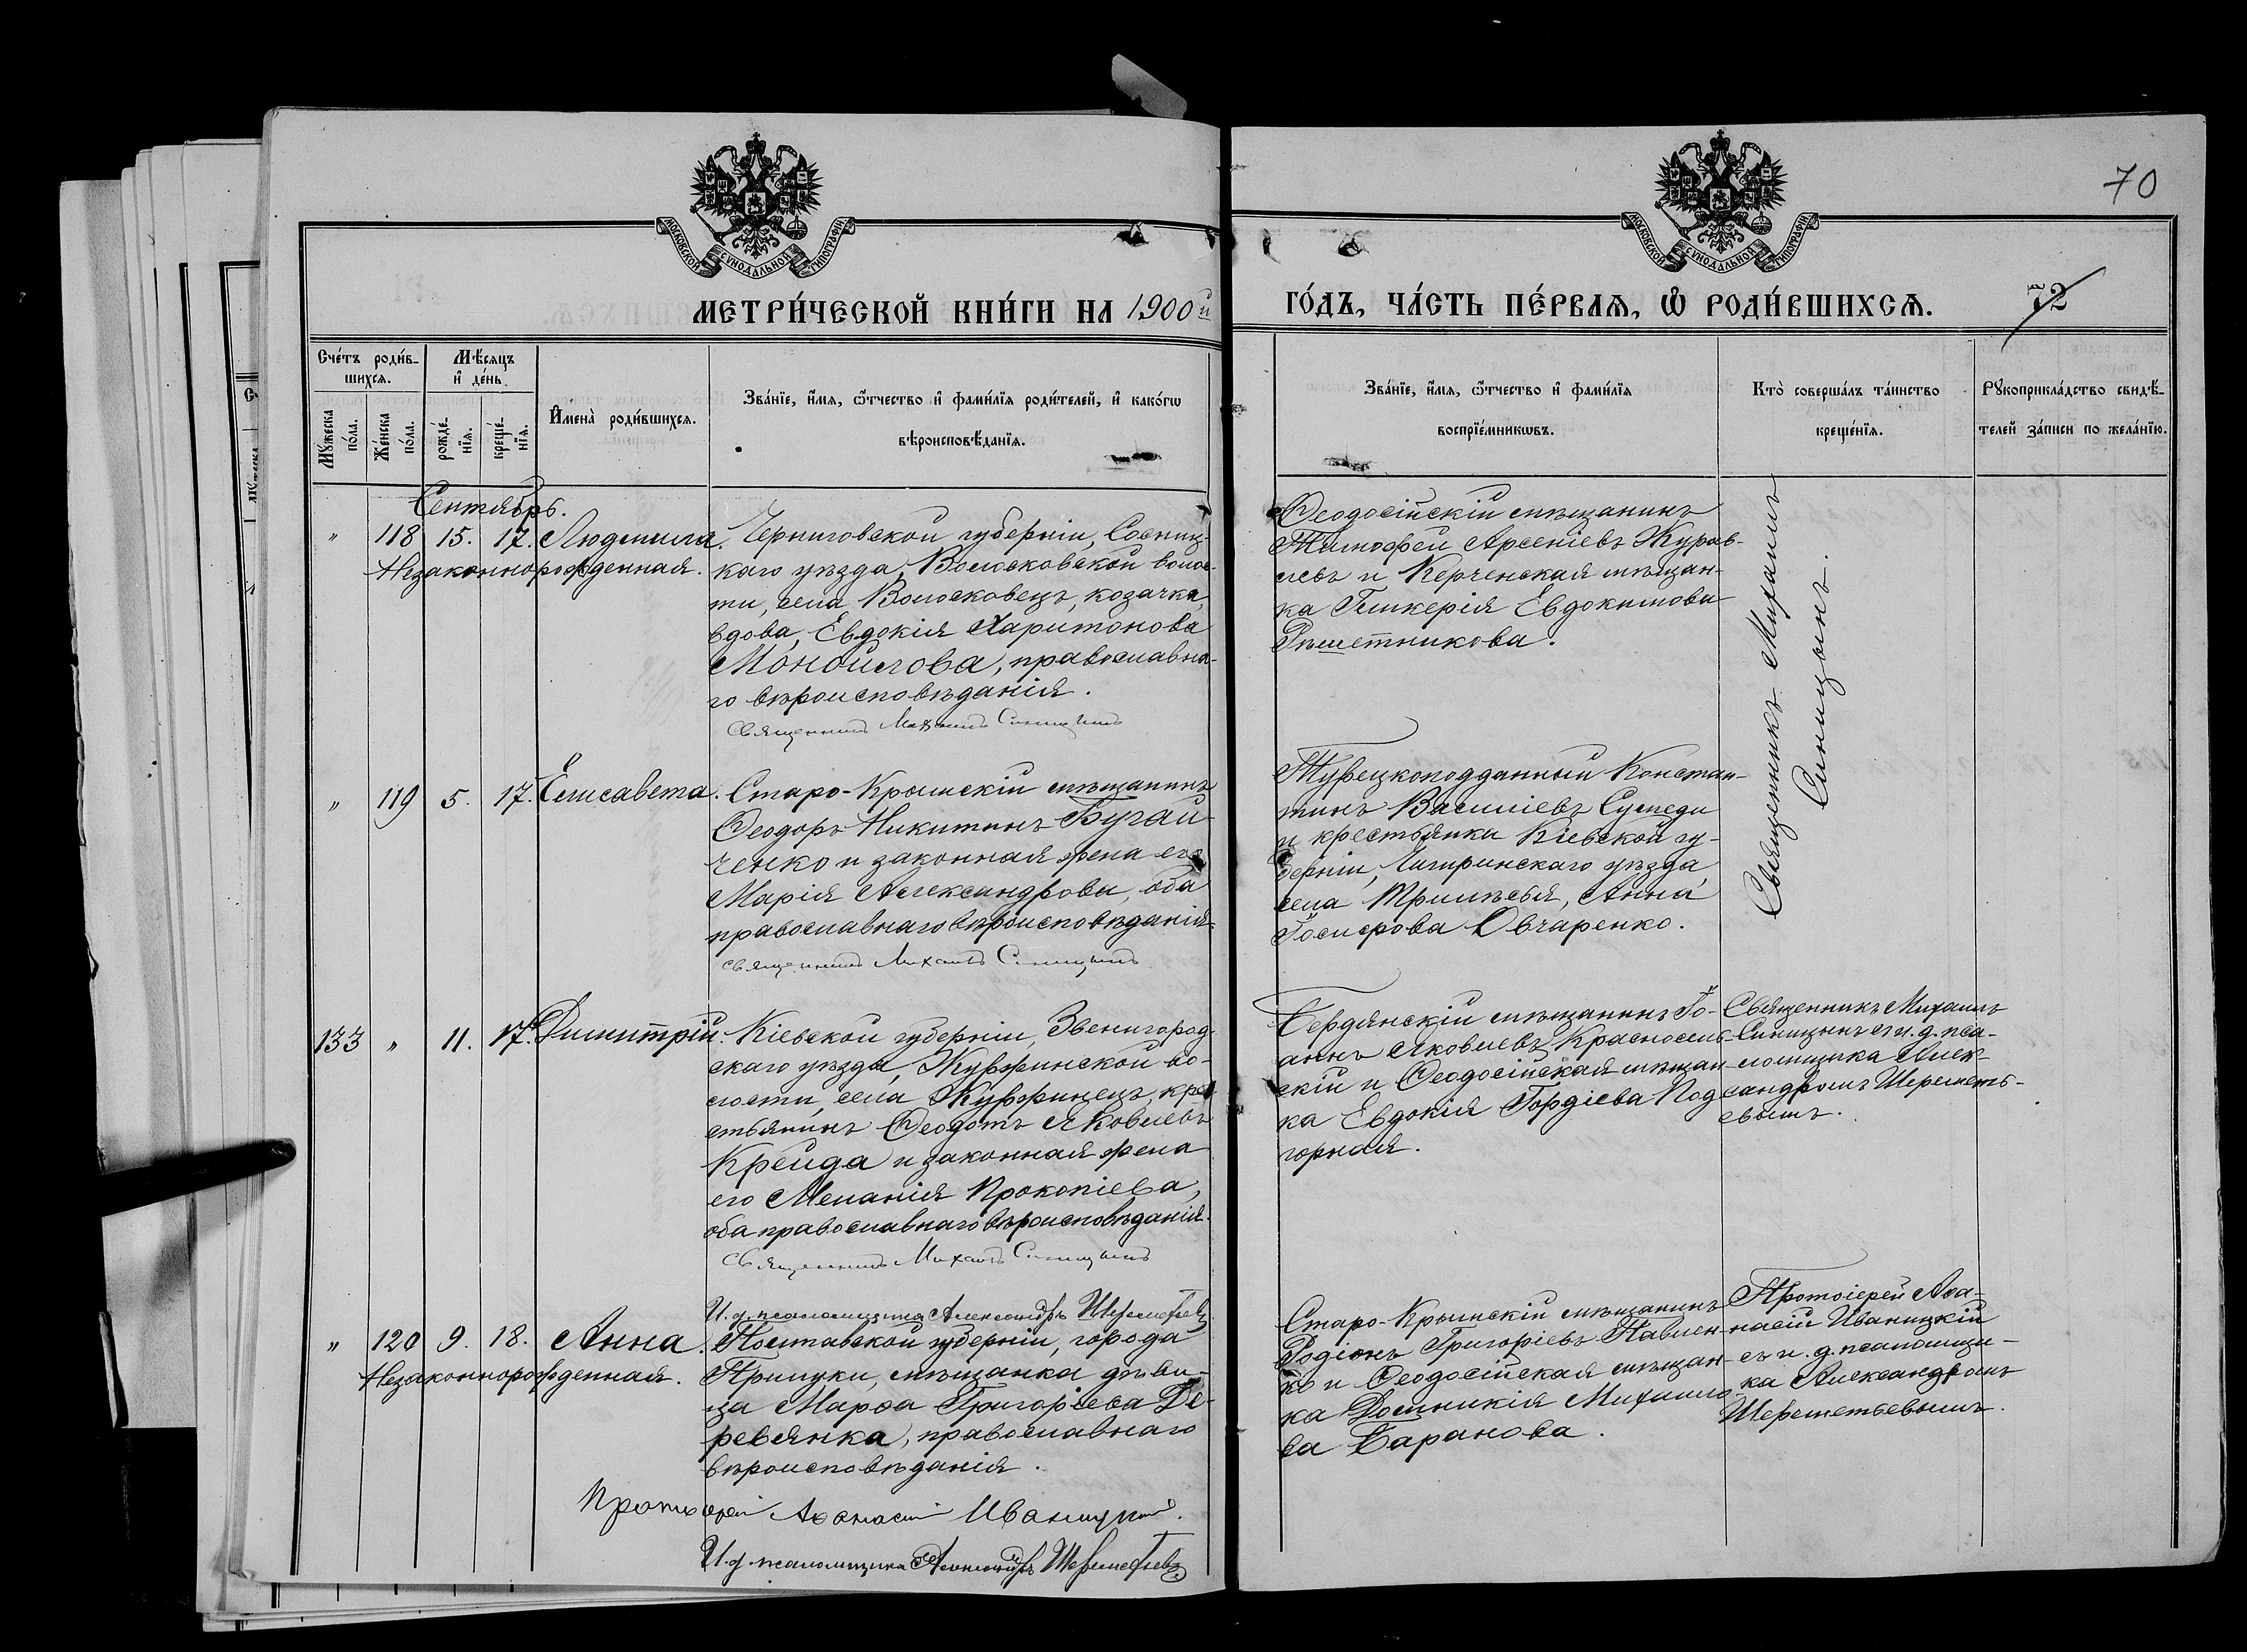 70
МОСКОВСКОЙ СУНОДАЛЬНОЙ ТИПОГРАФІИ
МОСКОВСКОЙ СУНОДАЛЬНОЙ ТИПОГРАФІИ
МЕТРИ́ЧЕСКОЙ КНИ́ГИ НА 1900й
ГО́ДЪ, ЧА́СТЬ ПЕ́РВАѦ, Ѿ РОДИ́ВШИХСѦ.
72
Сче́тъ роди́в-
шихсѧ.
Мѣ́сяцъ
и҆ де́нь
Мꙋ́жеска
по́ла.
Же́нска
по́ла.
рожде́-
нїѧ.
креще́-
нїѧ.
И҆мена̀ роди́вшихсѧ.
Зва́нїе, и҆́мѧ, ѻ҆́тчество и҆ фами́лїѧ роди́телей, и҆ како́гѡ
вѣроисповѣ́данїѧ.
Зва́нїе, и҆́мѧ, ѻ҆́тчество и҆ фами́лїѧ
воспрїе́мникѡвъ.
Кто̀ соверша́лъ та́инство
креще́нїѧ.
Рꙋкоприкла́дство свидѣ́-
телей за́писи по жела́нїю.
Сентябрь.
" 118 15. 17. Людмила.
Незаконнорожденная.
Черниговской губерніи, Сосниц-
каго уѣзда, Волосковской волос-
ти, села Волосковецъ, козачка,
вдова, Евдокія Харитонова
Моноилова, православна-
го вѣроисповѣданія.
Священникъ Михаилъ Синицынъ
Ѳеодосійскій мѣщанинъ
Тимоѳей Арсеніевъ Журав-
левъ и Керченская мѣщан-
ка Гликерія Евдокимова
Рѣшетникова.
Священникъ Михаилъ
Синицынъ.
" 119 5. 17. Елисавета.
Старо-Крымскій мѣщанинъ
Ѳеодоръ Никитинъ Бугай-
ченко и законная жена его
Марія Александрова, оба
православнаго вѣроисповѣданія.
Священникъ Михаилъ Синицынъ
Турецкоподданный Констан-
тинъ Василіевъ
и крестьянка Кіевской гу-
берніи, Чигринскаго уѣзда,
села Трилѣсья, Анна
Іосифова Овчаренко.
133 " 11. 17. Димитрій.
Кіевской губерніи, Звенигород-
скаго уѣзда, Журжинской во-
лости, села Журжинецъ, кре-
стьянинъ Ѳеодотъ Яковлевъ
Крейда и законная жена
его Меланія Прокопіева,
оба православнаго вѣроисповѣданія.
Священникъ Михаилъ Синицынъ
И. д. псаломщика Александръ Шереметьевъ
Бердянскій мѣщанинъ Іо-
аннъ Яковлевъ Красносель-
скій и Ѳеодосійская мѣщан-
ка Евдокія Гордіева Под-
горная.
Священникъ Михаилъ
Синицынъ съ и. д. пса-
ломщика Алек-
сандромъ Шереметь-
евымъ.
" 120 9. 18. Анна.
Незаконнорожденная.
Полтавской губерніи, города
Прилуки, мѣщанка дѣви-
ца Марѳа Григоріева Де-
ревянка, православнаго
вѣроисповѣданія.
Протоіерей Аѳанасій Иваницкій.
И. д. псаломщика Александръ Шереметьевъ
Старо-Крымскій мѣщанинъ
Родіонъ Григоріевъ Павлен-
ко и Ѳеодосійская мѣщан-
ка Домникія Михаило-
ва Баранова.
Протоіерей Аѳа-
насій Иваницкій
съ и. д. псаломщи-
ка Александромъ
Шереметьевымъ.